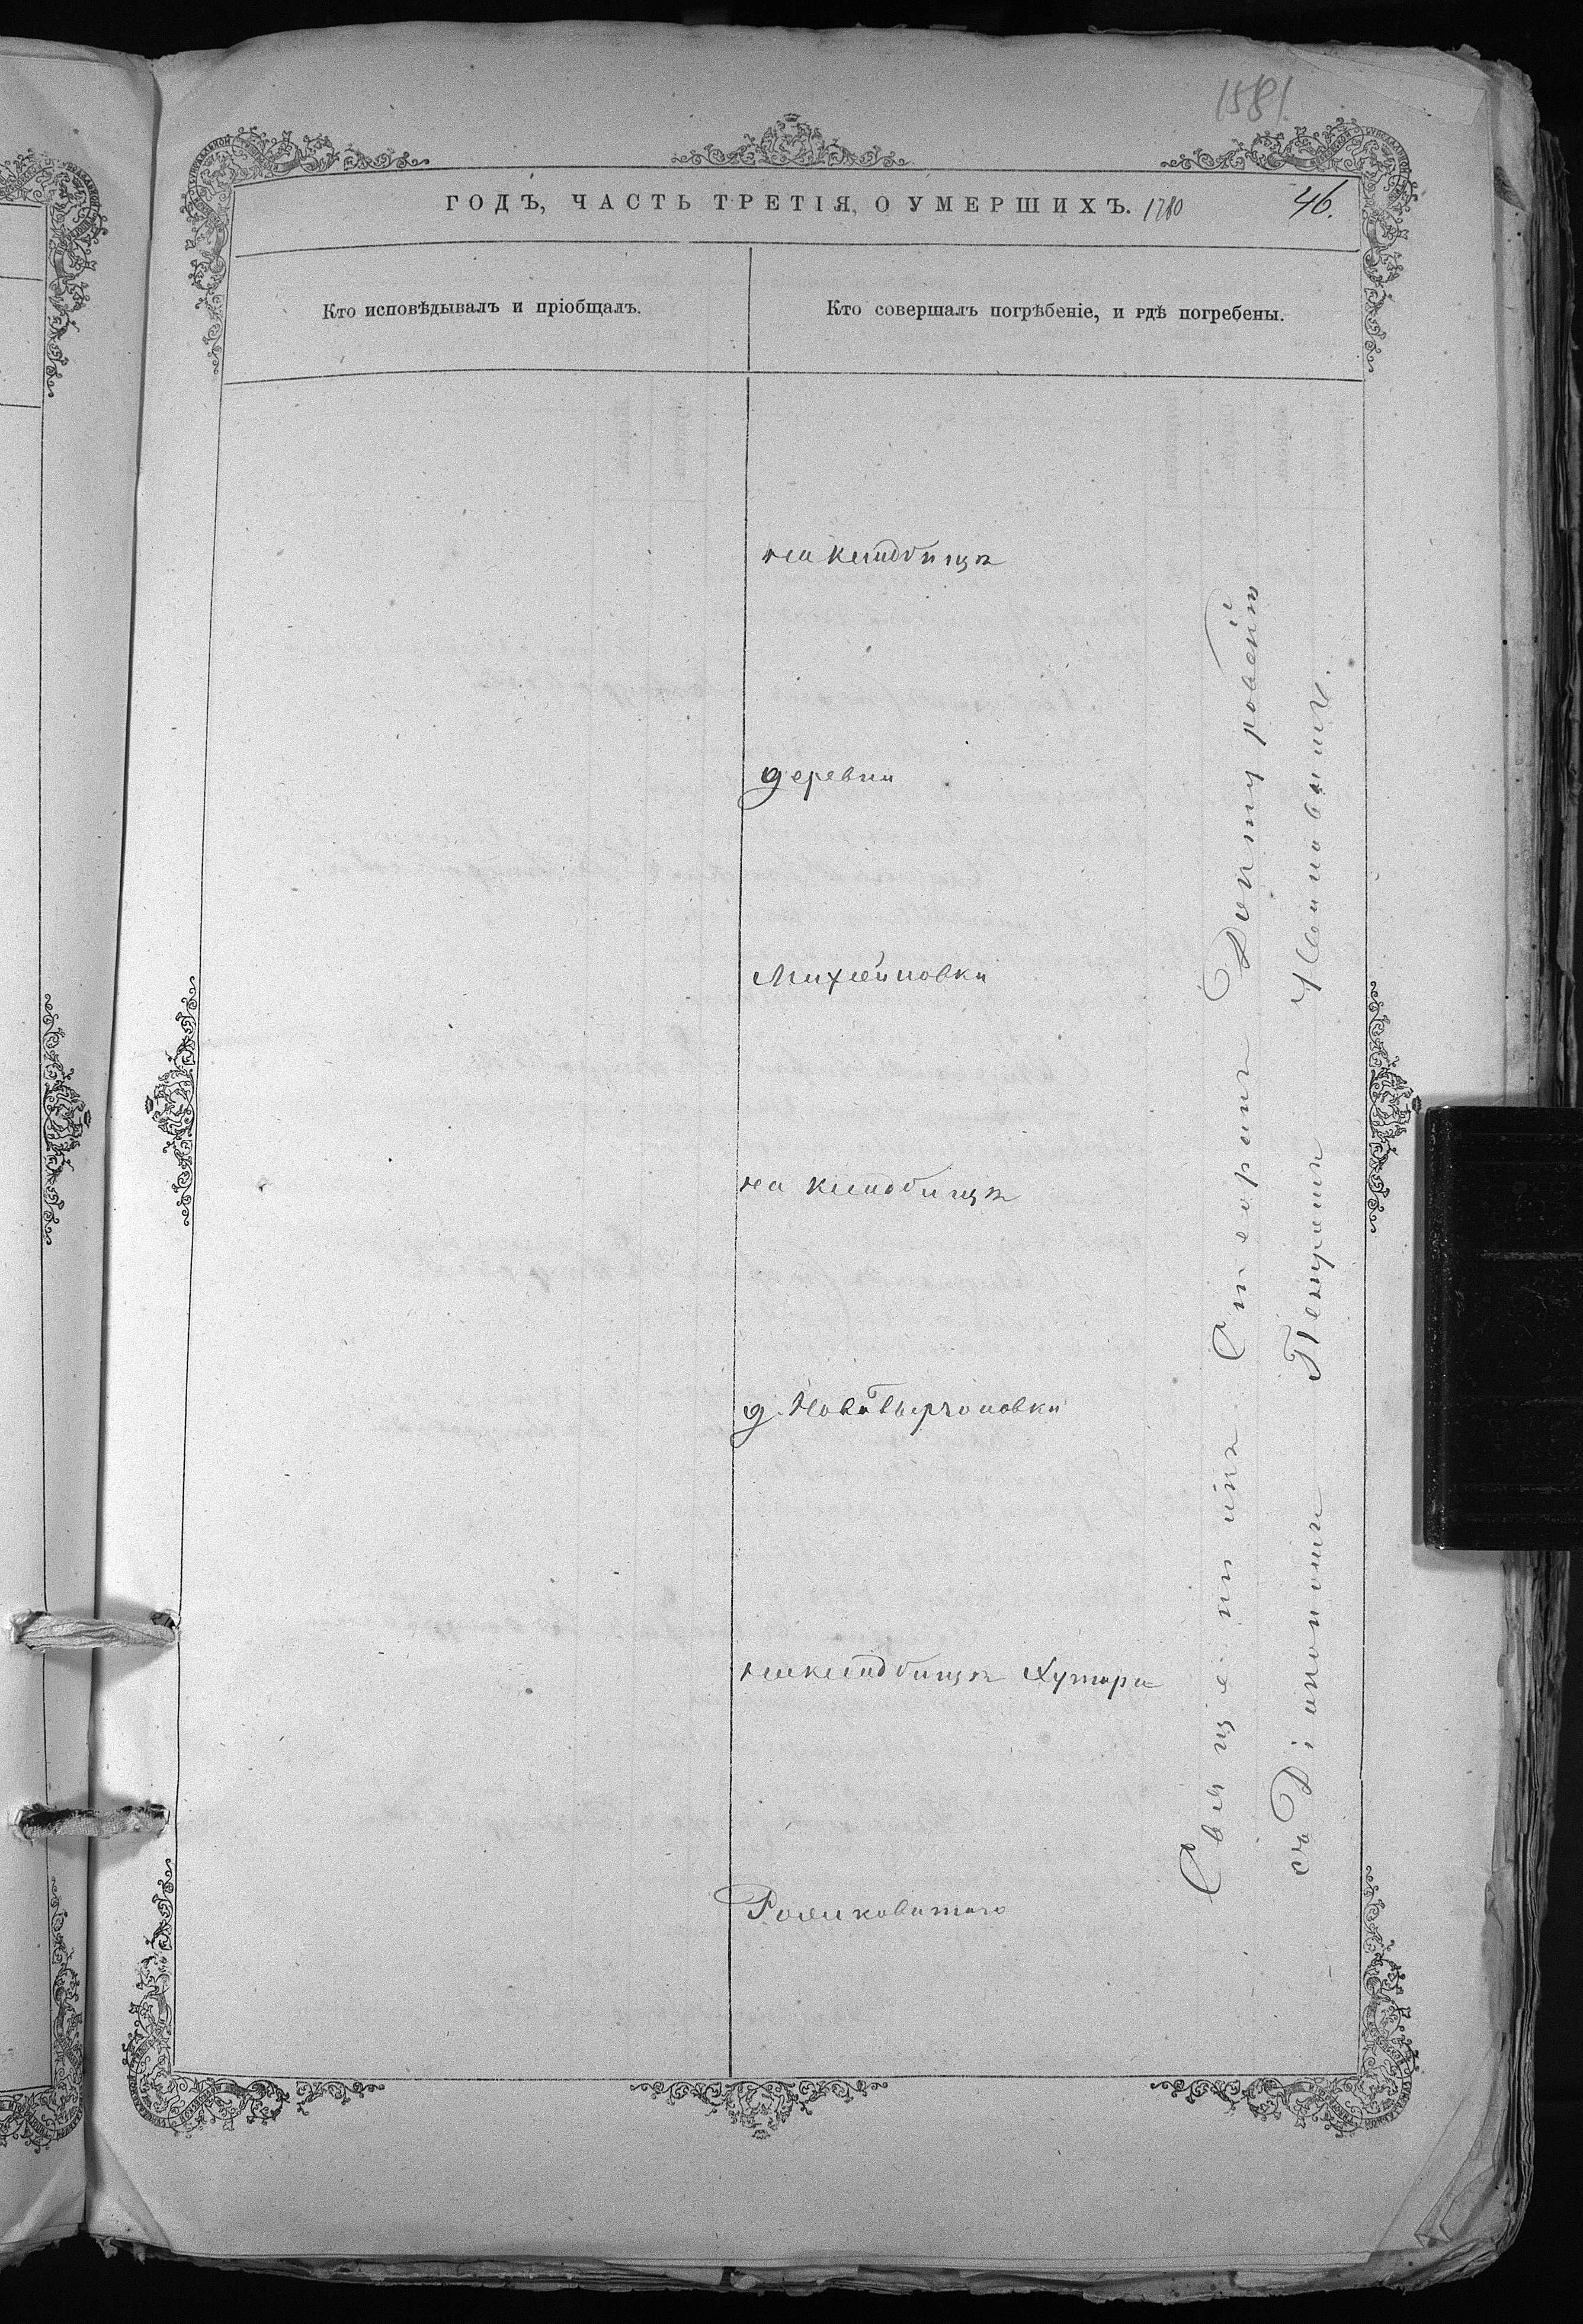 1581
ГОДЪ, ЧАСТЬ ТРЕТІЯ, О УМЕРШИХЪ. 1780
46.
Кто исповѣдывалъ и пріобщалъ.
Кто совершалъ погрѣбеніе, и гдѣ погребены.
на кладбищѣ
деревни
Михайловки
на кладбищѣ
д. Ново
на кладбищѣ Хутора
Священникъ Стефанъ
съ Діакономъ Петромъ Ивановымъ.